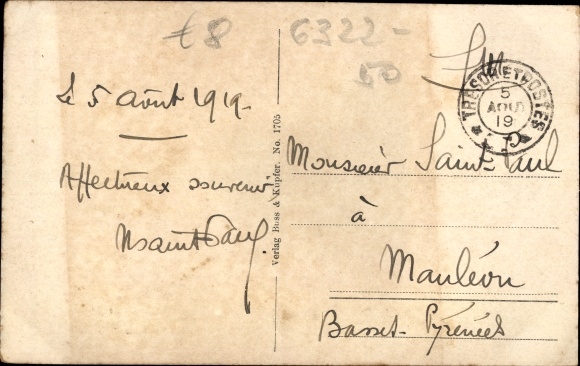 €8
6322-
50
Le 5 Août 1919-
Affectueux souvenir
MSaintPaul
Verlag Buss & Kupfer. No. 1705
F.M
TRÉSOR ET POSTES
5
AOUT
19
Monsieur Saint-Paul
à
Mauléon
Basses-Pyrénées